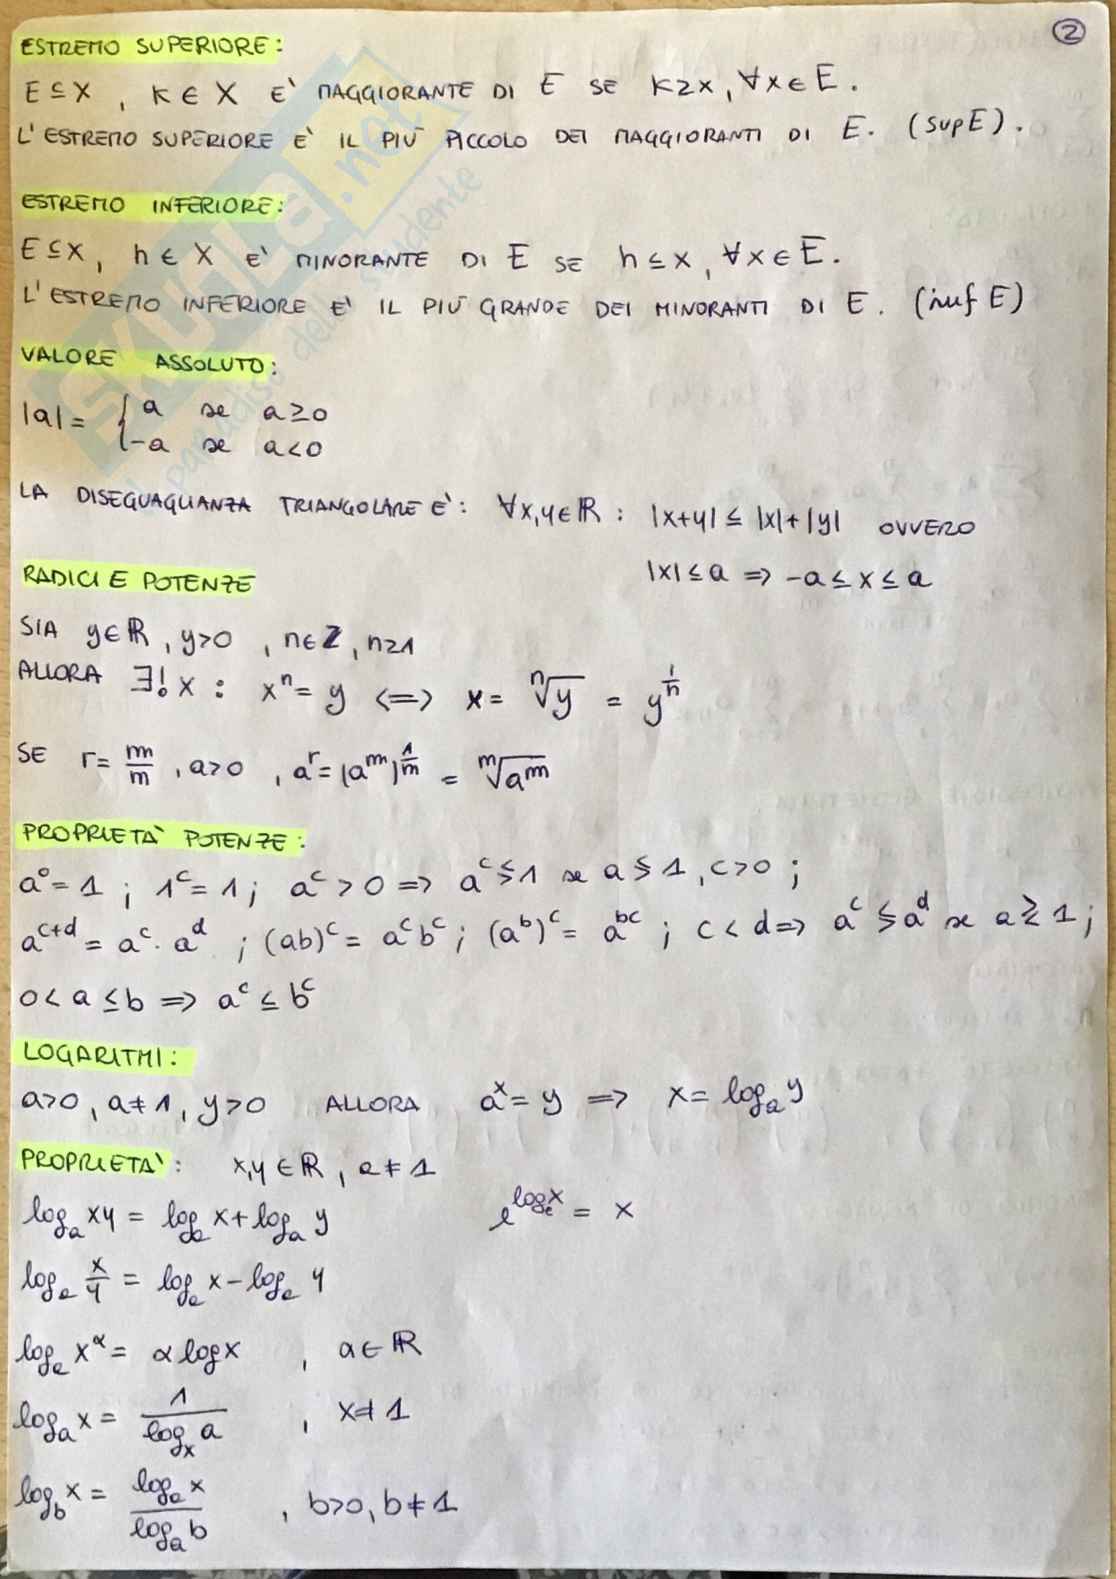 2
ESTREMO SUPERIORE:
E ⊆ X , K ∈ X E' MAGGIORANTE DI E SE K ≥ x , ∀x ∈ E .
L'ESTREMO SUPERIORE E' IL PIÙ PICCOLO DEI MAGGIORANTI DI E. (sup E) .
ESTREMO INFERIORE:
E ⊆ X , h ∈ X E' MINORANTE DI E SE h ≤ x , ∀x ∈ E.
L'ESTREMO INFERIORE E' IL PIÙ GRANDE DEI MINORANTI DI E . (inf E)
VALORE ASSOLUTO:
|a| = { a se a ≥ 0
-a se a < 0
LA DISEGUAGLIANZA TRIANGOLARE E': ∀x,y ∈ ℝ : |x+y| ≤ |x|+|y| OVVERO
|x| ≤ a => -a ≤ x ≤ a
RADICI E POTENZE
SIA y ∈ ℝ , y>0 , n ∈ Z , n ≥ 1
ALLORA ∃! x : xⁿ = y <=> x = ⁿ√y = y^(1/n)
SE r = m/m , a>0 , a^r = (a^m)^(1/m) = ᵐ√(a^m)
PROPRIETÀ POTENZE:
a⁰ = 1 ; 1^c = 1 ; a^c > 0 => a^c ≶ 1 se a ≶ 1 , c > 0 ;
a^(c+d) = a^c · a^d ; (ab)^c = a^c b^c ; (a^b)^c = a^(bc) ; c < d => a^c ≶ a^d se a ≷ 1 ;
0 < a ≤ b => a^c ≤ b^c
LOGARITMI:
a>0 , a ≠ 1 , y>0 ALLORA a^x = y => x = log_a y
PROPRIETA': x,y ∈ ℝ , a ≠ 1
log_a xy = log_a x + log_a y e^(log_e x) = x
log_a x/y = log_a x - log_a y
log_a x^α = α log x , a ∈ ℝ
log_a x = 1/(log_x a) , x ≠ 1
log_b x = (log_a x)/(log_a b) , b>0, b ≠ 1
SKUOLA.net
il paradiso dello studente